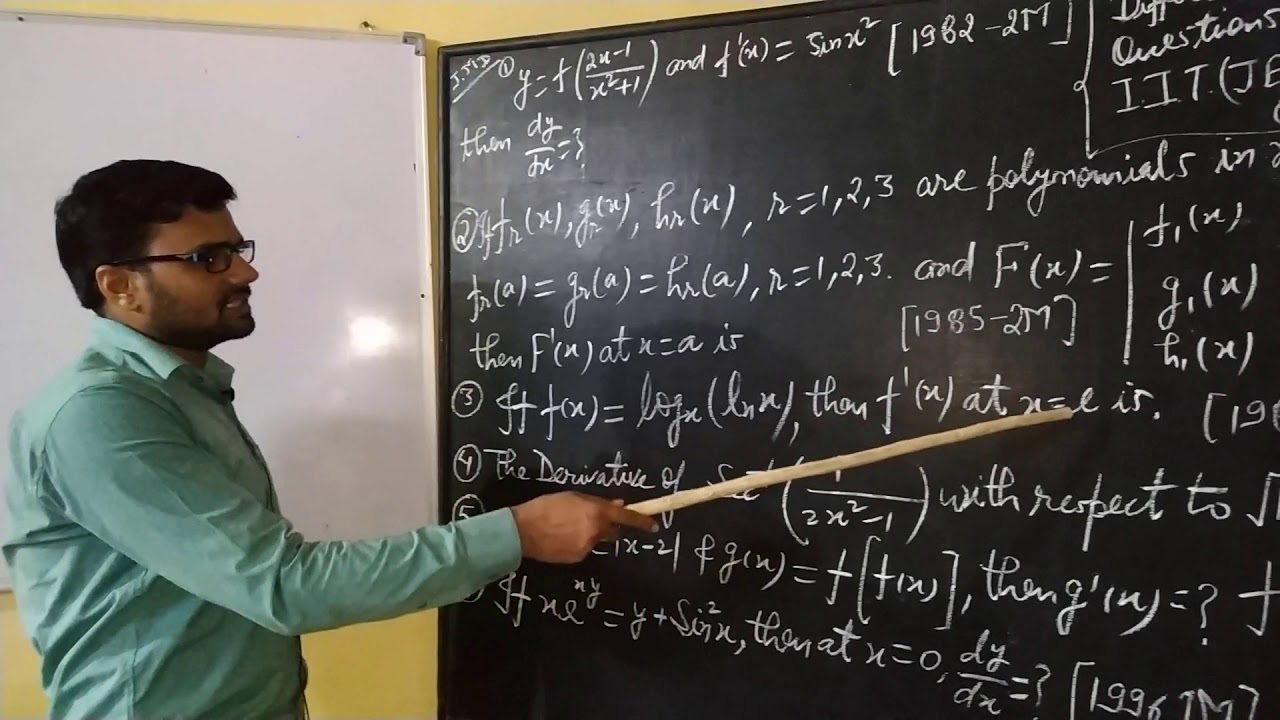 ① y = f((2x-1)/(x²+1)) and f'(x) = Sinx² [1982-2M]
then dy/dx = ?
Questions
I.I.T.(JE
② If fr(x), gr(x), hr(x), r=1,2,3 are polynomials in
fr(a) = gr(a) = hr(a), r=1,2,3. and F(x) = | f₁(x)
g₁(x)
h₁(x)
[1985-2M]
then F'(x) at x=a is
③ If f(x) = logx(lnx), then f'(x) at x=e is. [19
④ The Derivative of Sec (1/(2x²-1)) with respect to √
⑤ = |x-2| & g(x) = f[f(x)], then g'(x) = ?
If xe^xy = y + Sin²x, then at x=0, dy/dx = ? [1996